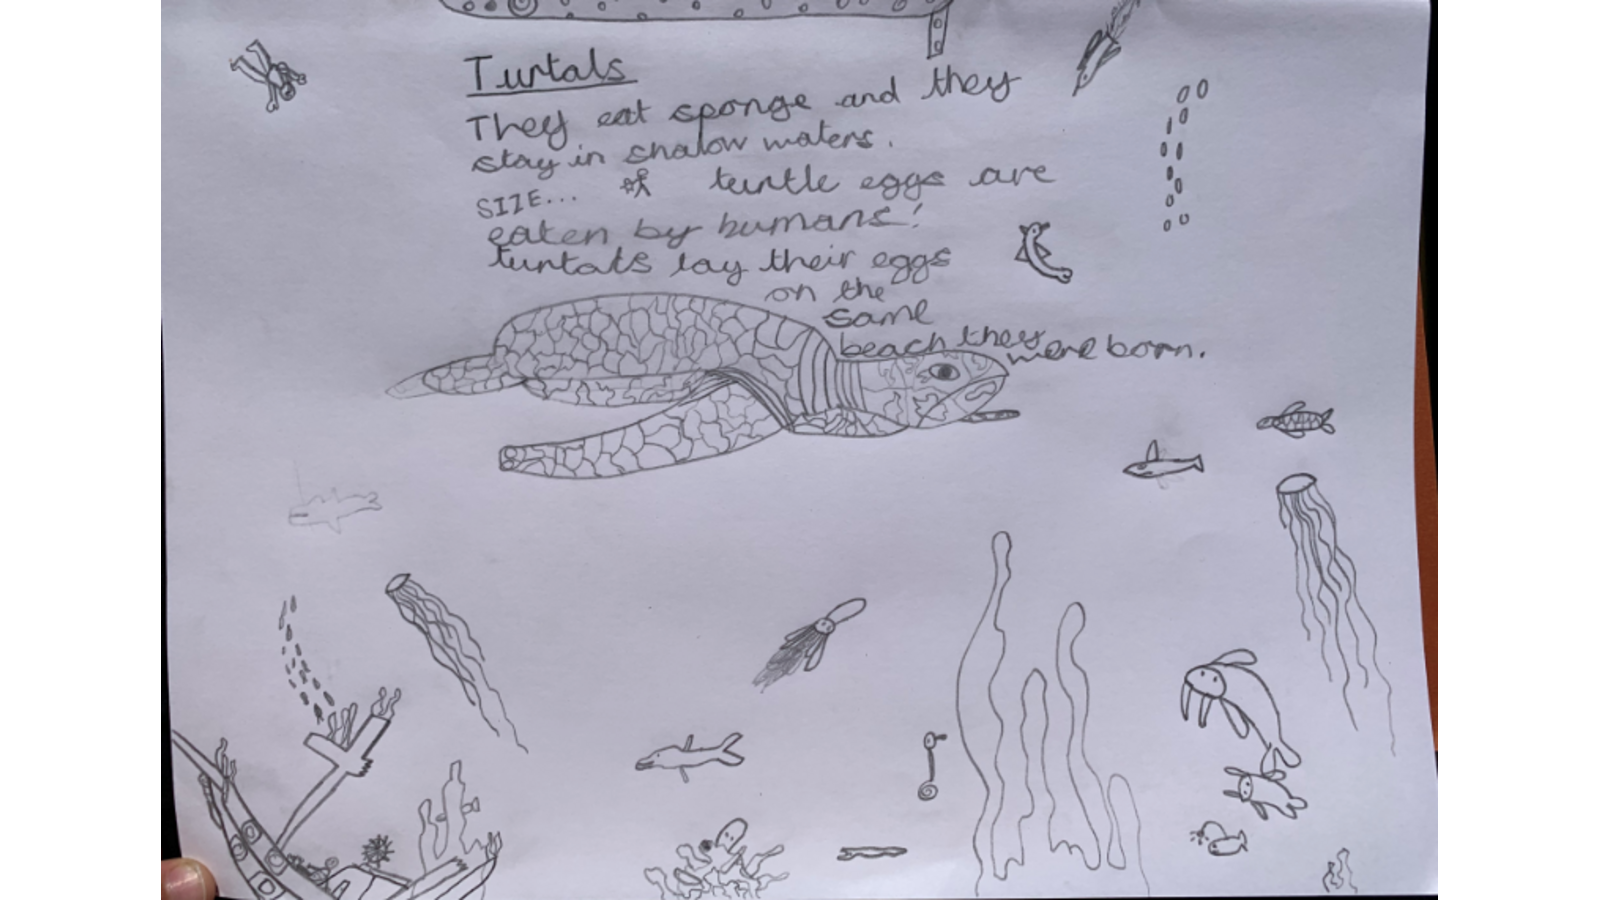 Turtals
They eat sponge and they
stay in shalow waters.
SIZE... turtle eggs are
eaten by humans!
turtals lay their eggs
on the
same
beach they
were born.